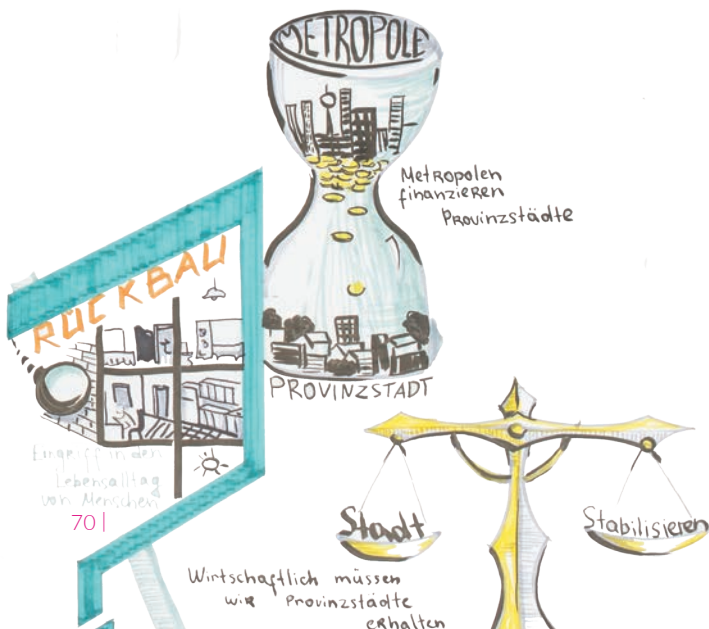 METROPOLE
Metropolen
finanzieren
Provinzstädte
RÜCKBAU
PROVINZSTADT
Eingriff in den
Lebensalltag
von Menschen
70 |
Stadt
Stabilisieren
Wirtschaftlich müssen
wir Provinzstädte
erhalten